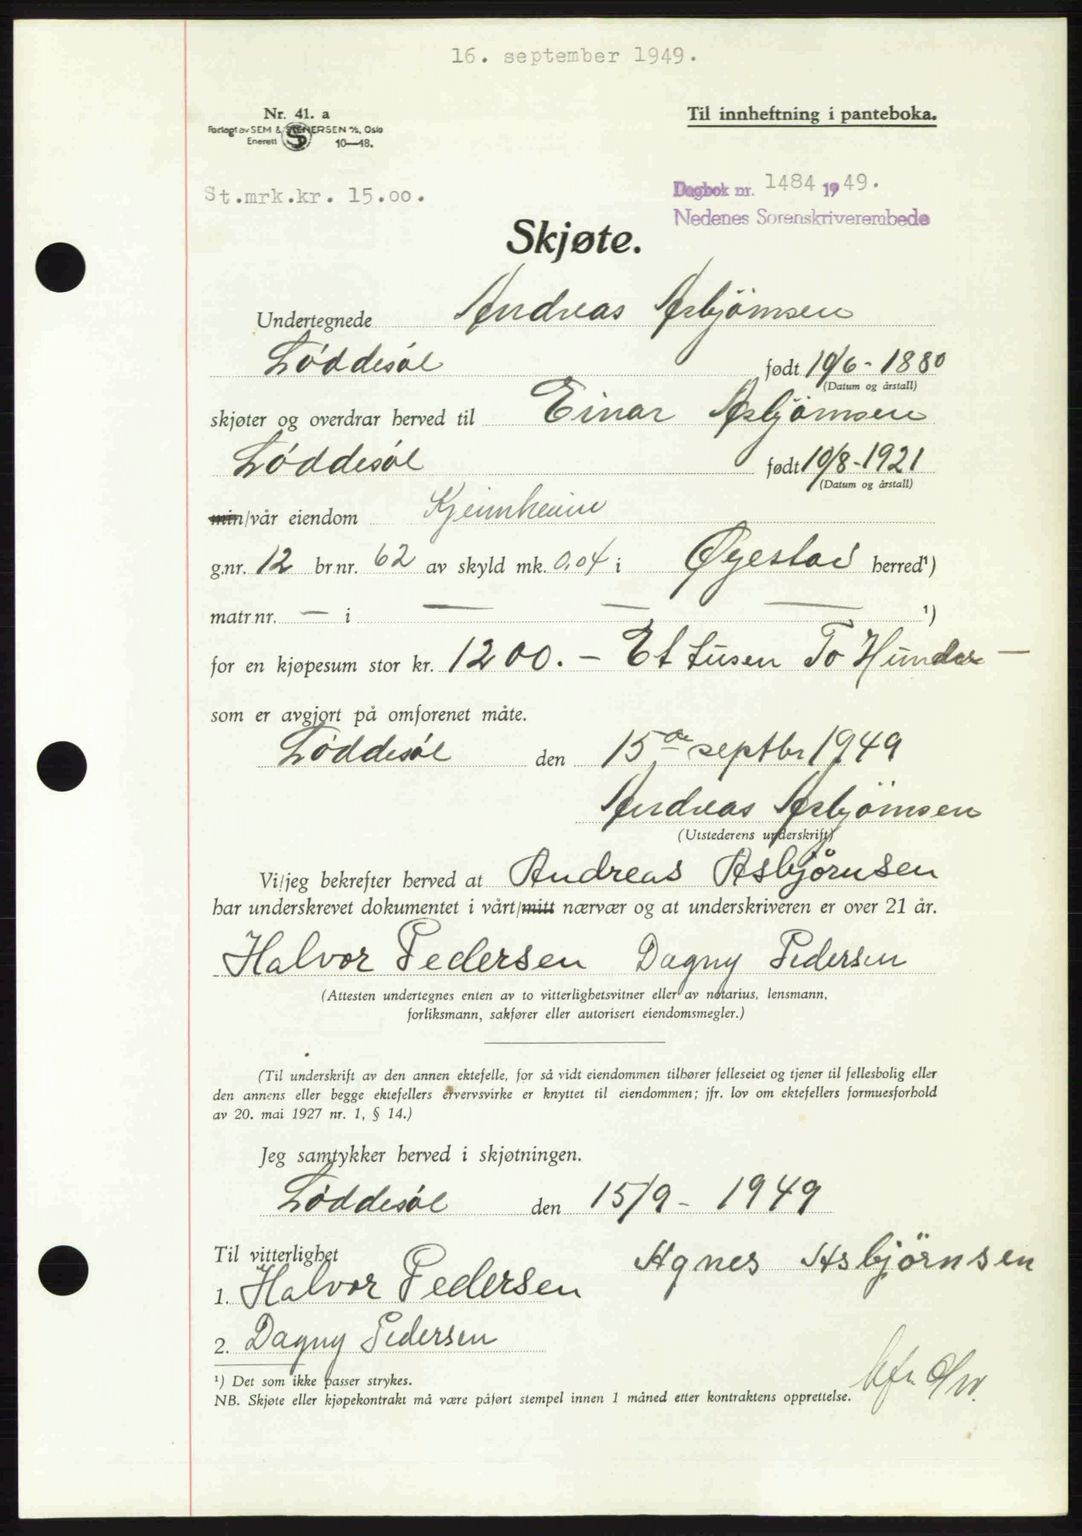 16. september 1949.
Nr. 41. a
Forlagt av SEM & STENERSEN A/S, Oslo
Enerett 10—48.
Til innheftning i panteboka.
St.mrk.kr. 15.00.
Dagbok nr. 1484 1949.
Nedenes Sorenskriverembede
Skjøte.
Undertegnede Andreas Asbjørnsen
Løddesøl født 19/6-1880
(Datum og årstall)
skjøter og overdrar herved til Einar Asbjørnsen
Løddesøl født 19/8-1921
(Datum og årstall)
min/vår eiendom Kjeimheim
g.nr. 12 br.nr. 62 av skyld mk. 0.04 i Øyestad herred¹)
matr.nr. — i — — — ¹)
for en kjøpesum stor kr. 1200. — Et tusen To Hundre —
som er avgjort på omforenet måte.
Løddesøl den 15de septbr 1949
Andreas Asbjørnsen
(Utstederens underskrift)
Vi/jeg bekrefter herved at Andreas Asbjørnsen
har underskrevet dokumentet i vårt/mitt nærvær og at underskriveren er over 21 år.
Halvor Pedersen Dagny Pedersen
(Attesten undertegnes enten av to vitterlighetsvitner eller av notarius, lensmann,
forliksmann, sakfører eller autorisert eiendomsmegler.)
(Til underskrift av den annen ektefelle, for så vidt eiendommen tilhører felleseiet og tjener til fellesbolig eller
den annens eller begge ektefellers ervervsvirke er knyttet til eiendommen; jfr. lov om ektefellers formuesforhold
av 20. mai 1927 nr. 1, § 14.)
Jeg samtykker herved i skjøtningen.
Løddesøl den 15/9 - 1949
Til vitterlighet Agnes Asbjørnsen
1. Halvor Pedersen
2. Dagny Pedersen
¹) Det som ikke passer strykes.
NB. Skjøte eller kjøpekontrakt må være påført stempel innen 1 måned etter kontraktens opprettelse.